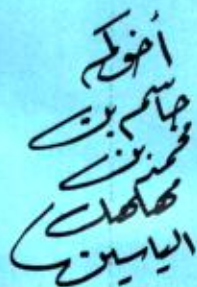 أخوكم
جاسم بن
محمد بن
مهلهل
الياسين